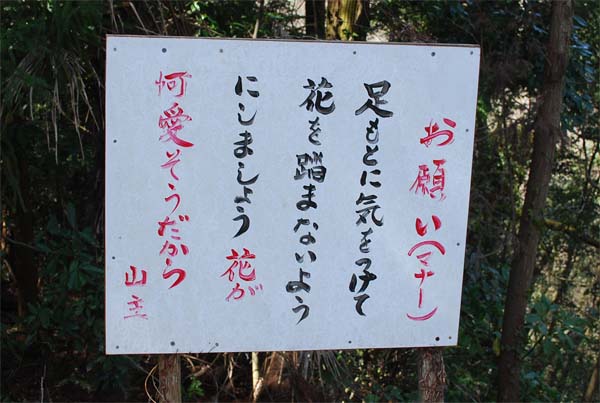 お願い(マナー)
足もとに気をつけて
花を踏まないよう
にしましょう 花が
可愛そうだから
山主